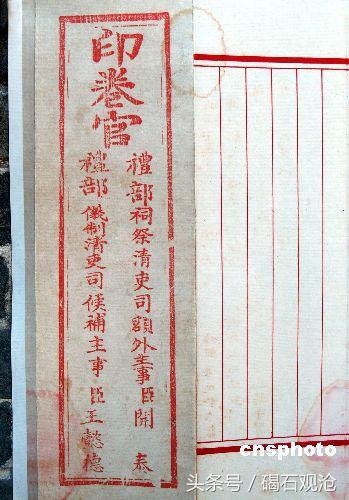 印卷官
禮部祠祭清吏司額外主事臣開泰
禮部儀制清吏司候補主事臣王懿德
cnsphoto
头条号/碣石观沧